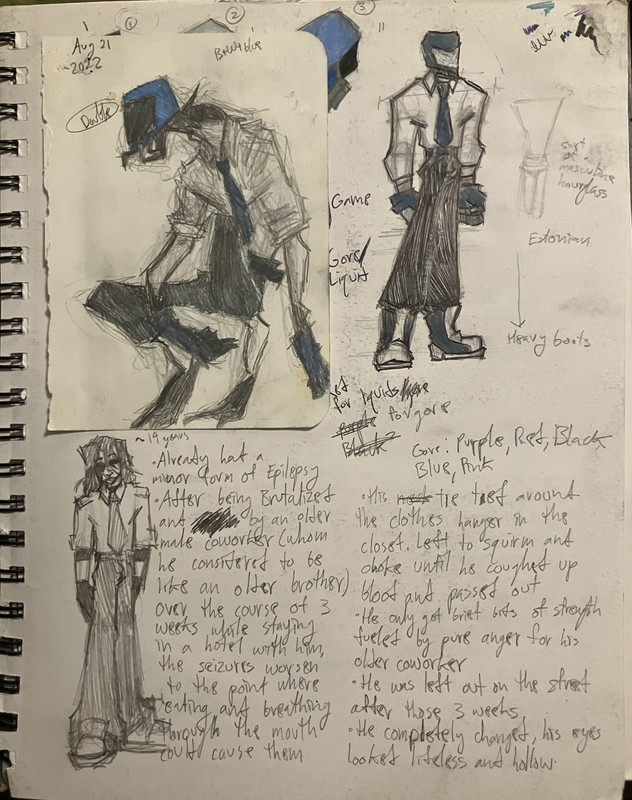 ①
②
③
Aug 21
2022
Brutblue
Game
Gore/
Liquid
sort
of a
masculine
hourglass
Estonian
Heavy boots
for liquids
for gore
Black
Gore: Purple, Red, Black,
Blue, Pink
~19 years
• Already had a
minor form of Epilepsy
• After being Brutalized
and by an older
male coworker (whom
he considered to be
like an older brother)
over the course of 3
weeks while staying
in a hotel with him,
the seizures worsen
to the point where
eating and breathing
through the mouth
could cause them
• His tie tied around
the clothes hanger in the
closet. Left to squirm and
choke until he coughed up
blood and passed out
• He only got brief bits of strength
fueled by pure anger for his
older coworker
• He was left out on the street
after those 3 weeks
• He completely changed, his eyes
looked lifeless and hollow.